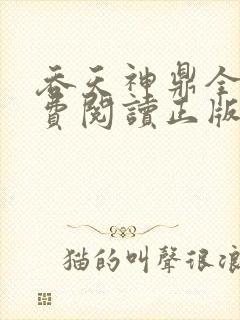 吞天神鼎全
費閱讀正版
猫的叫聲很浪